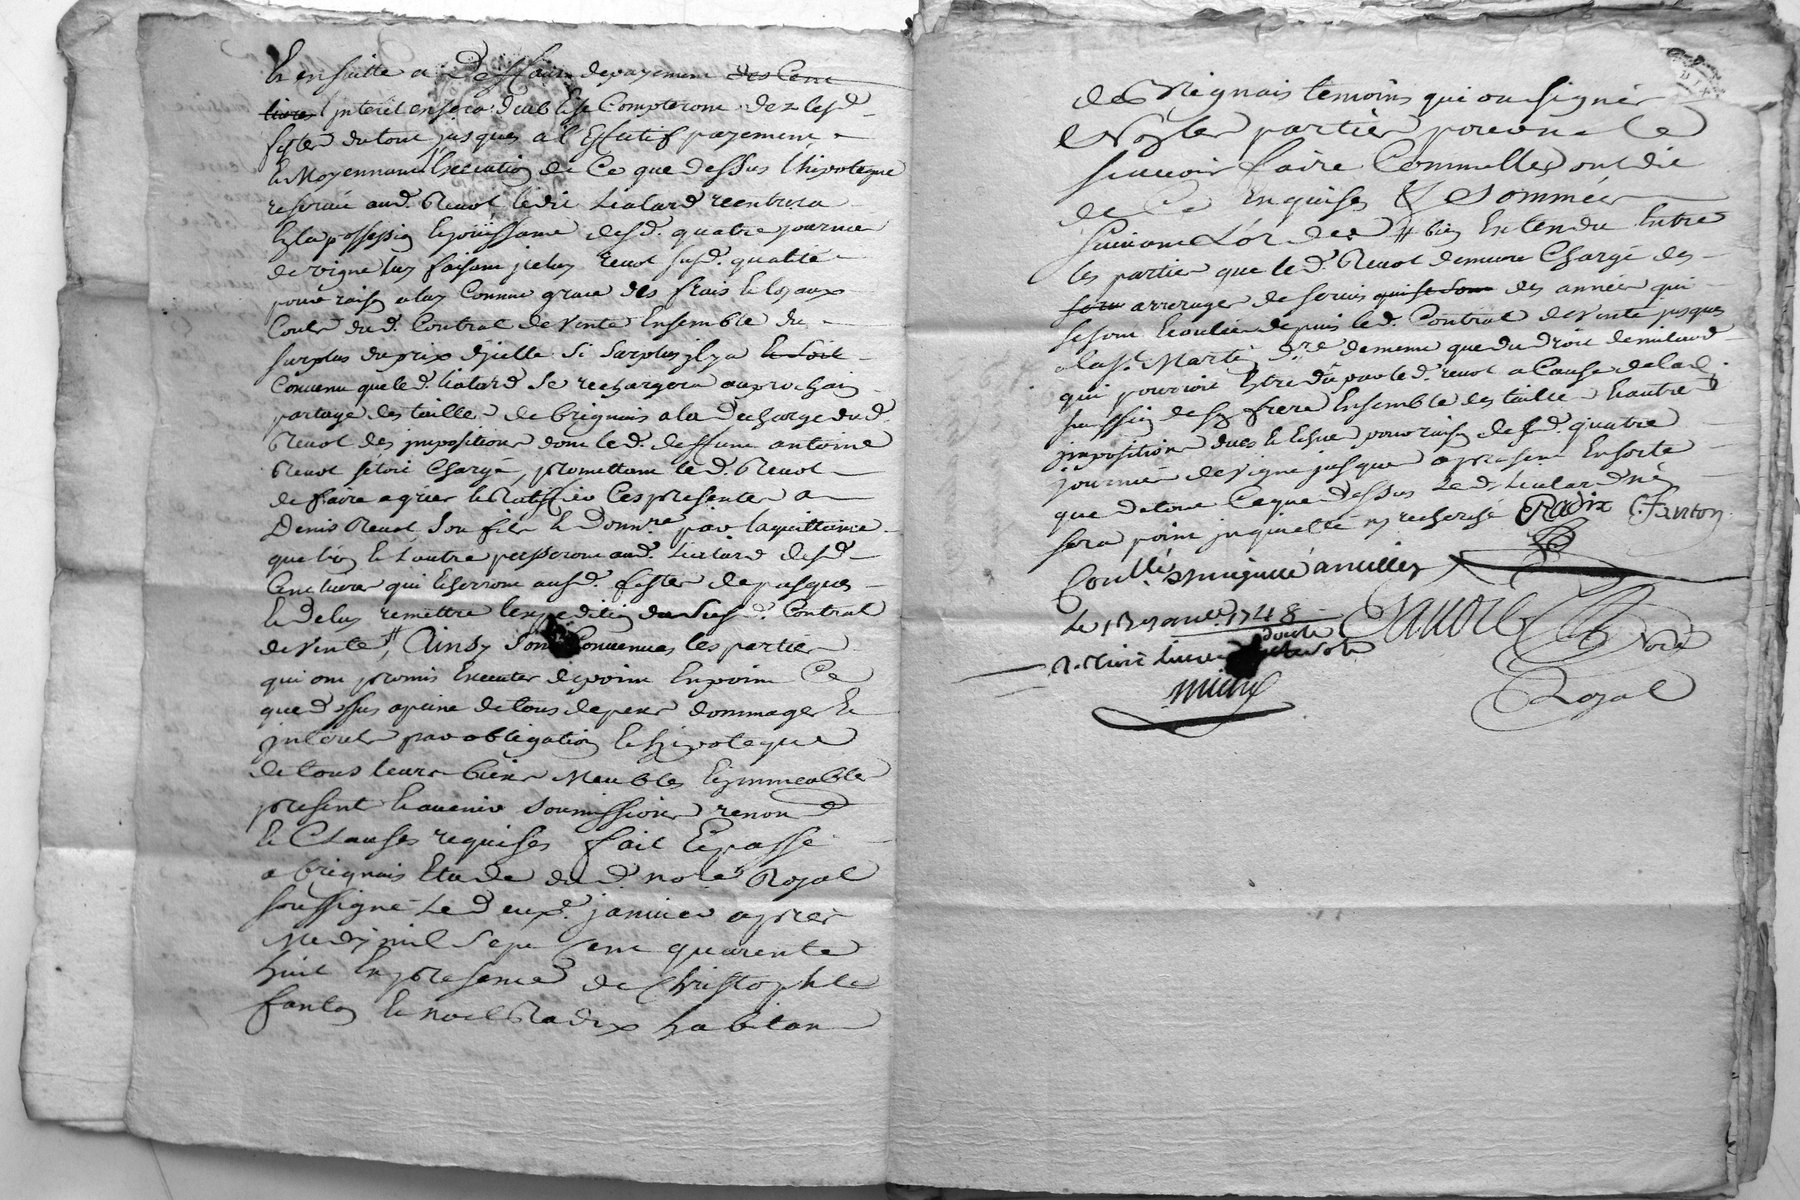 En ensuitte a Deffaut de payement des Cent
livres Interet en sera dub et se Compteront dez lesd
festes du tout jusques a l'Effectif payement
Et Moyennant Execution de Ce que dessus l'hipoteque
reservée aud. Revot led. Liatard rentrera
En la possession Et jouissance desd. quatre journée
de vigne luy faisant jceluy revot susd. qualité
pour raison a luy Comme grace des frais Et loyaux
Couts dud. Contrat de vente Ensemble du
surplus du prix djcelle Si Surplus jl y a Et Soit
Convenu que led. Liatard Se rechargera au prochain
partage des tailles de brignais a la Decharge dud.
Revot des jmpositions dont le d. deffunt antoine
Revot setoit Chargé, promettant le d. Revot
de faire agréer Et Ratiffier Ces presentes a
Denis Revot Son fils Et Donnre par la quittance
que l'un Et L'autre passeront aud. Liatard desd.
Cent livres qui Escherront ausd. festes de pasques
Et de luy remettre l'expedition du Susd. Contrat
de vente, Ainsy Sont Convenues les parties
qui ont promis Executer de point En point Ce
que Dessus a peine de tous depens dommages Et
jnterets par obligation Et hipoteque
de tous leurs biens Meubles Et jmmeubles
present Et avenir Soumissions renon d
Et Clauses requises fait Et passé
a brignais Etude dud. no.re Royal
soussigné Le Deux.e janvier apres
Midy mil Sept Cent quarente
huit En presence de Christophle
fanton Et noel Radix habitant
de Brignais temoins qui ont signés
Et Non les parties pour ne le
scavoir faire Comme Elles ont dit
de Ce Enquises & Sommées
Suivant L'ordce # bien Entendu Entre
les parties que le d. Revot demeure Chargé des
arrerages de servis qui se sont des années qui
se sont Ecoulées depuis le d. Contrat de vente jusques
a la St. Martin d.re de meme que du droit de milaod
qui pourroit Estre dû par le d. revot a Cause de la
succession de son frere Ensemble des tailles Et autre
jmpositions dues Et Echue pour raison desd. quatre
journées de vigne jusques a present En sorte
que de tout Ce que dessus Le d. Liatard ne
sera point jnquietté ny recherché Radix Fanton
Le 13 janv.r 1748
Royal